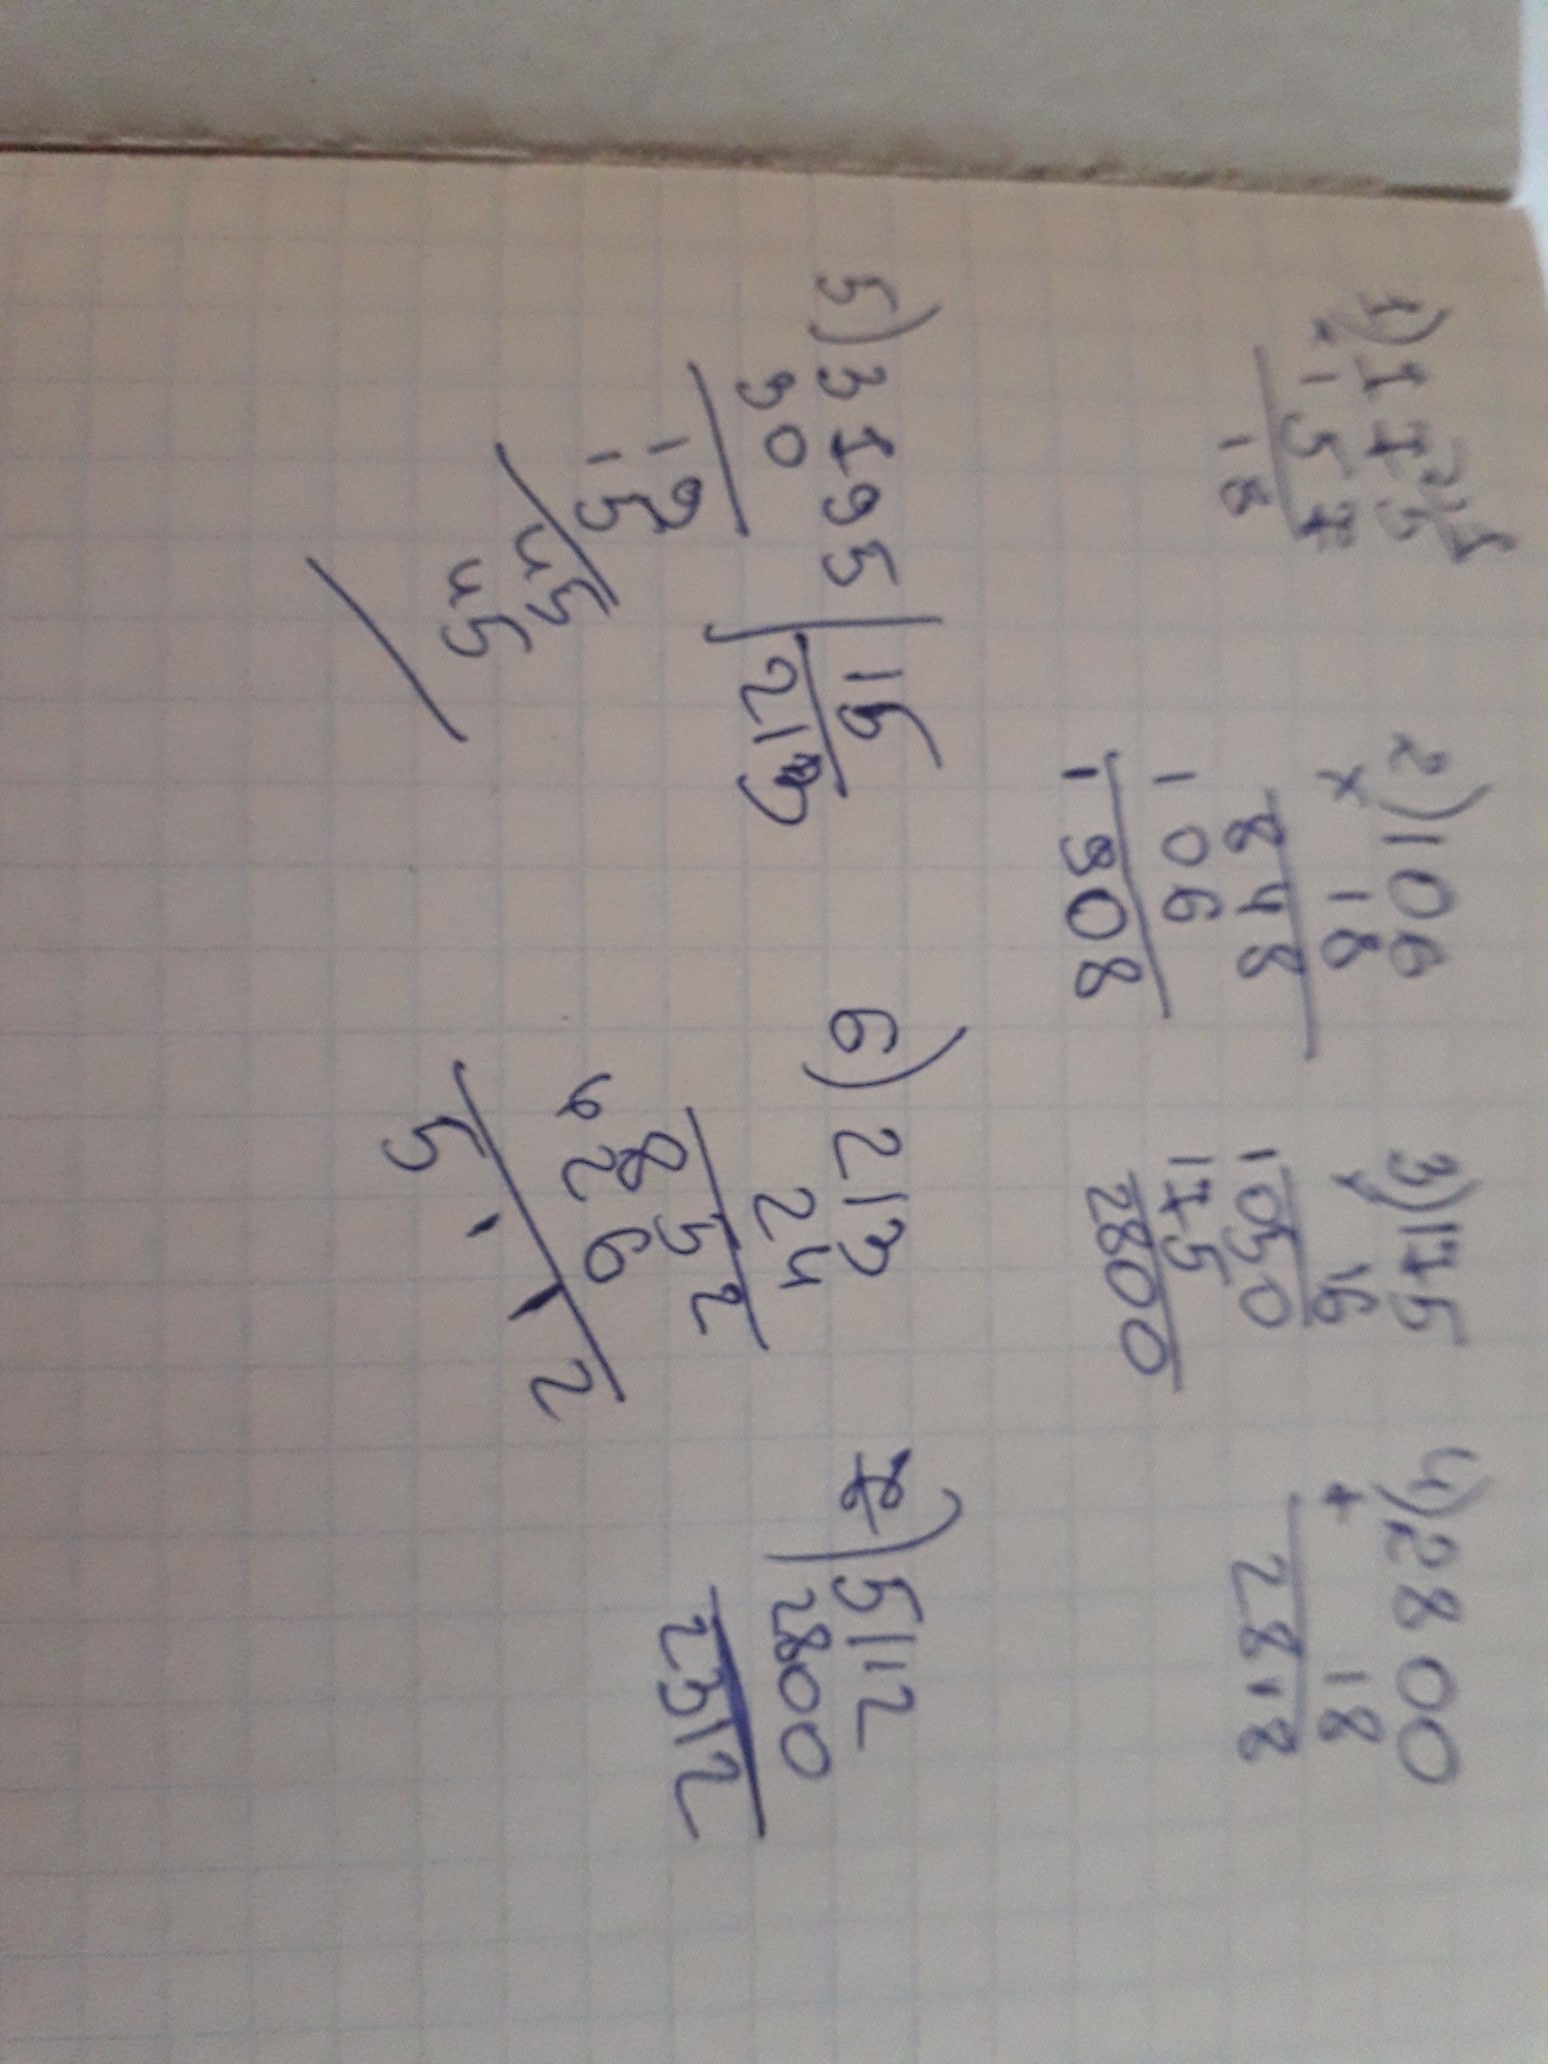 1) 175
- 157
18
2) 106
x 18
848
106
1908
3) 175
x 16
1050
175
2800
4) 2800
+ 18
2818
5) 3195 | 15
30 | 213
19
15
45
45
6) 213
24
852
426
5112
7) 5112
2800
2312